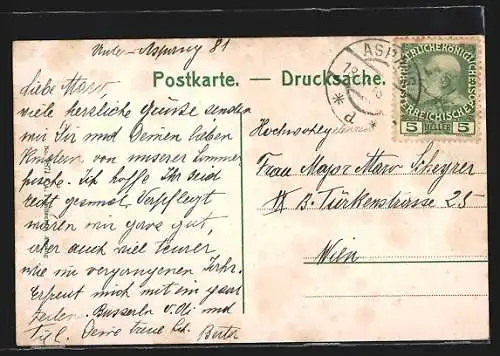 Unter-Aspang 81
Postkarte. — Drucksache.
ASP
KAISERLICHE KÖNIGLICHE
ÖSTERREICHISCHE POST
5 HELLER 5
Liebe
viele herzliche Grüsse senden
wir Dir und Deinen lieben
Kindern von unserer Sommer-
frische. Ich hoffe Ihr seid
recht gesund. Verpflegt
wären wir ganz gut,
aber auch viel teurer
wie im vergangenen Jahr.
Erfreut mich mit ein paar
Zeilen. Busserln v. Oti und
Deine treue
Hochwohlgeboren
Frau Major
IX B. Türkenstrasse 25
Wien